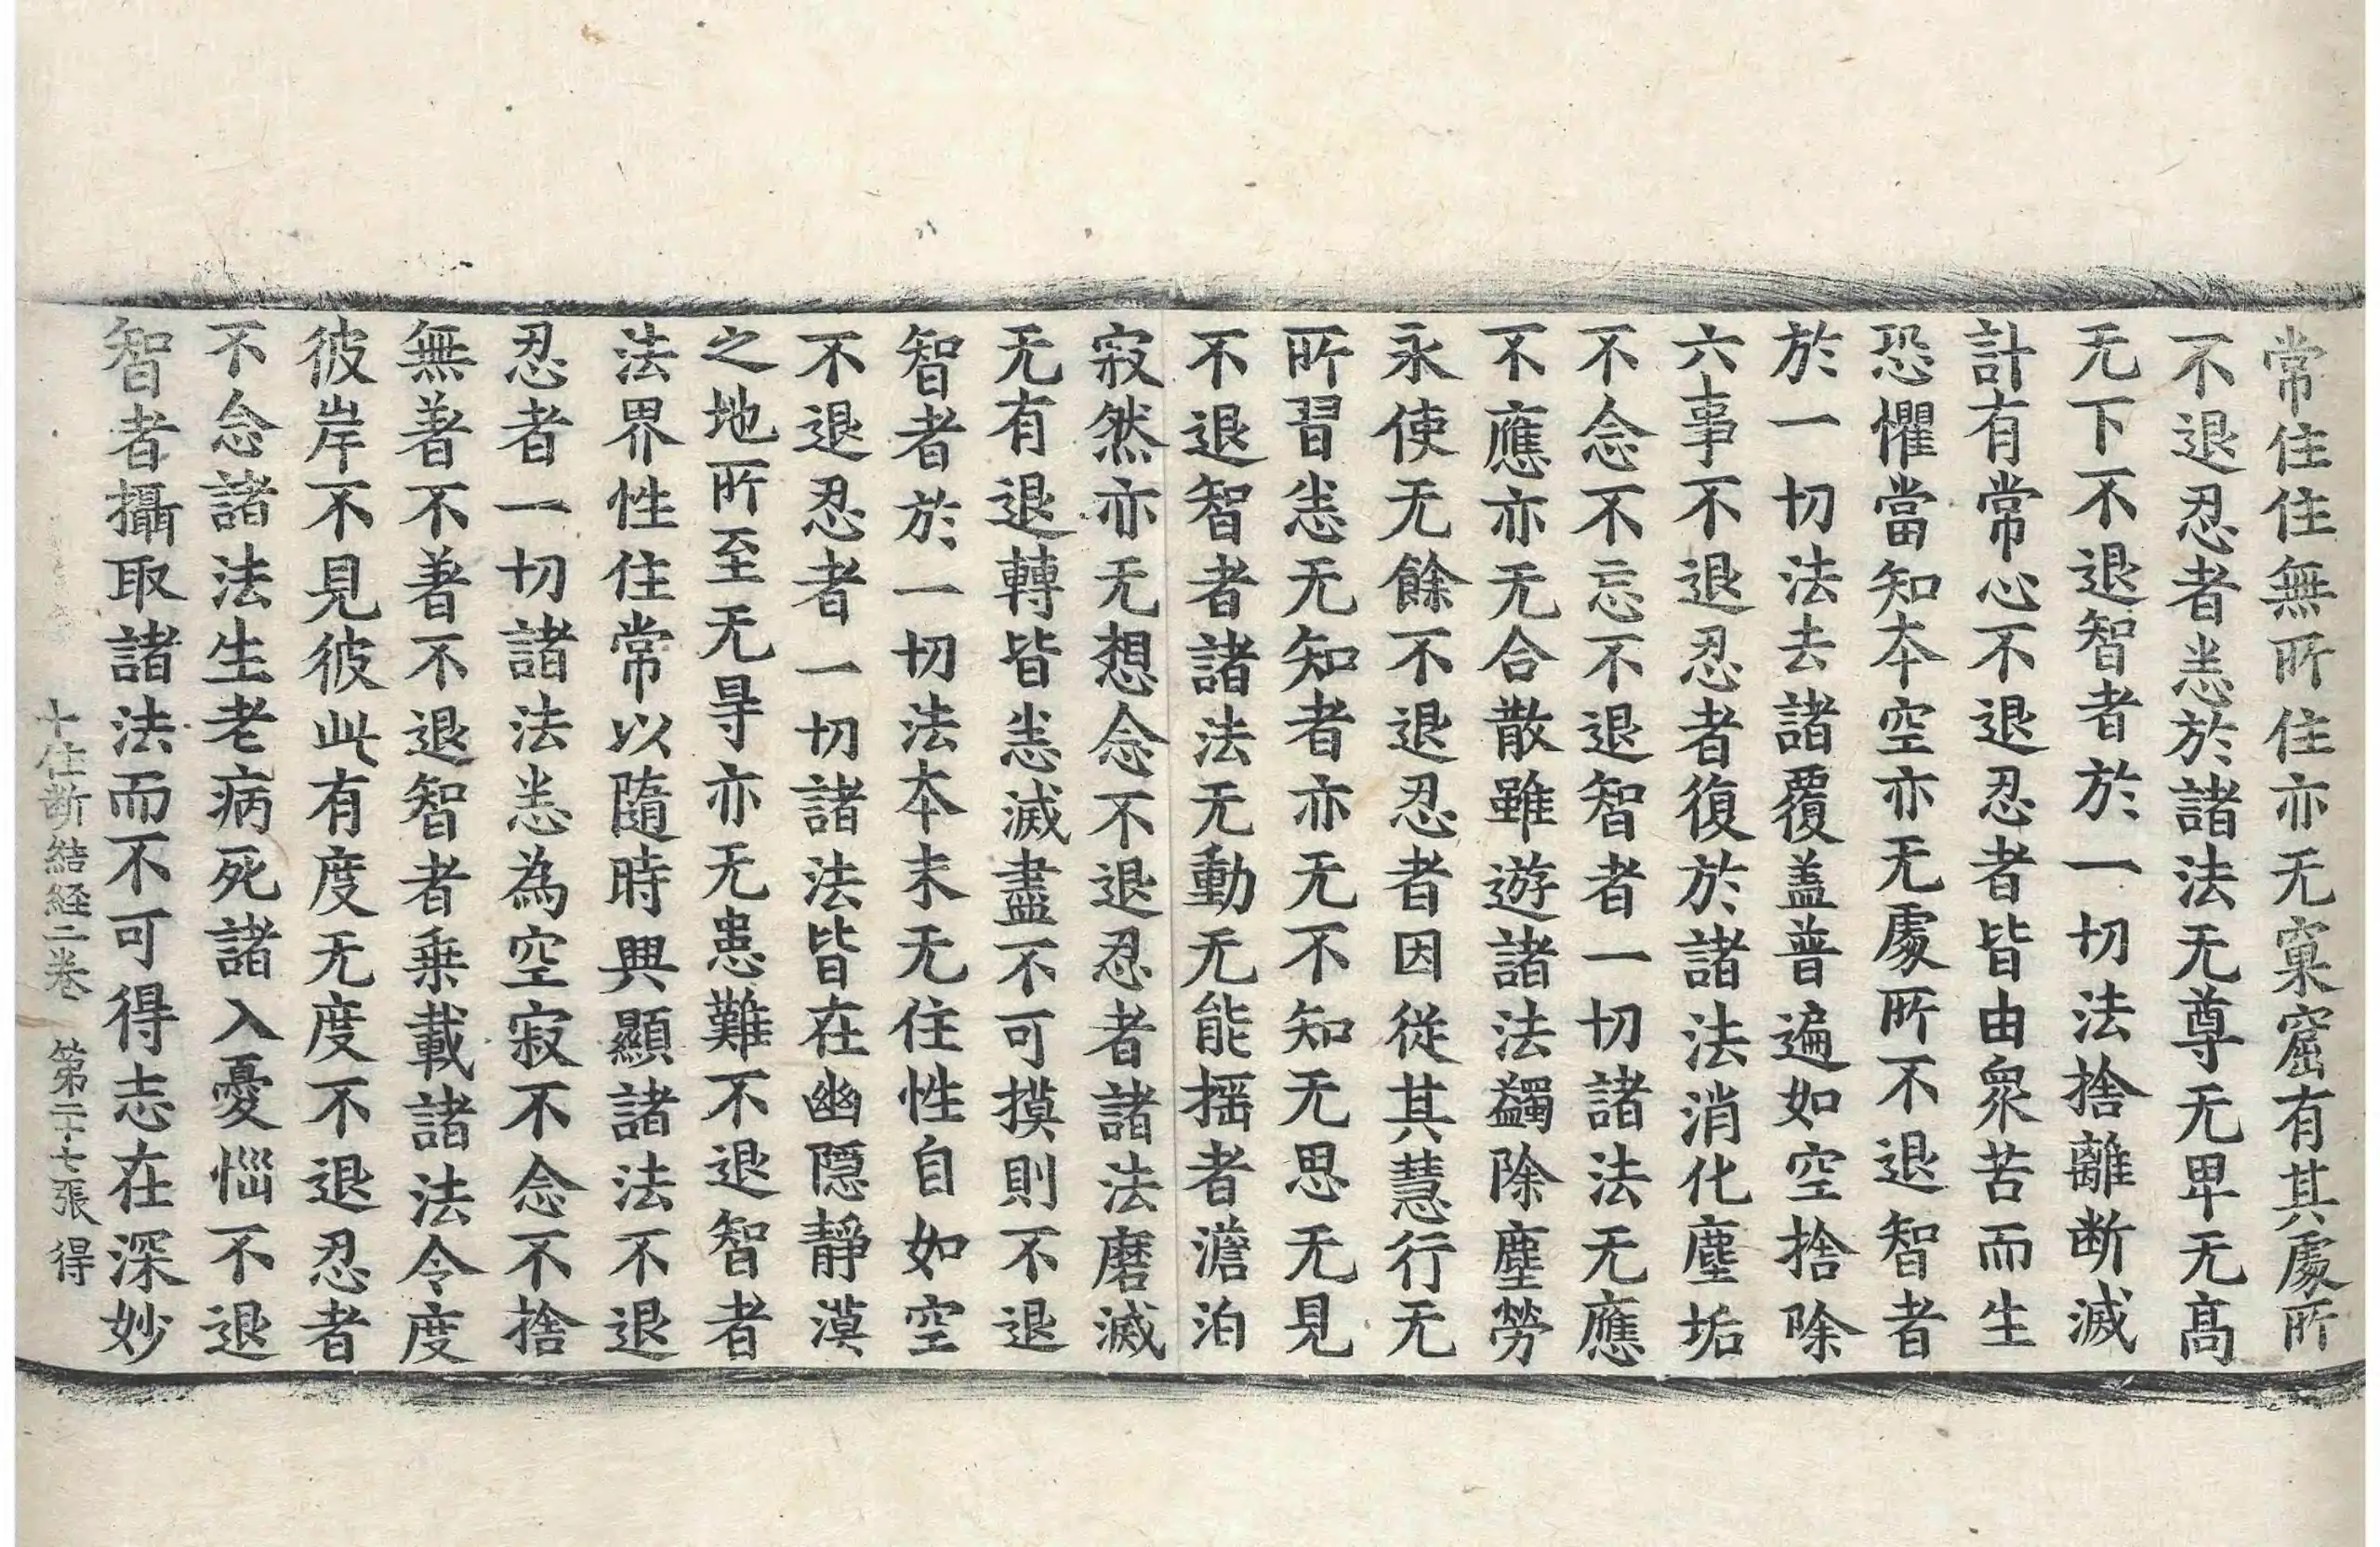 常住住無所住亦无窠窟有其處所
不退忍者恙於諸法无尊无卑无髙
无下不退智者於一切法捨離断滅
計有常心不退忍者皆由衆苦而生
恐懼當知本空亦无處所不退智者
於一切法去諸覆盖普遍如空捨除
六事不退忍者復於諸法消化塵垢
不念不忘不退智者一切諸法无應
不應亦无合散雖遊諸法蠲除塵勞
永使无餘不退忍者因從其慧行无
所習恙无知者亦无不知无思无見
不退智者諸法无動无能揺者澹泊
寂然亦无想念不退忍者諸法磨滅
无有退轉皆恙滅盡不可摸則不退
智者於一切法本末无住性自如空
不退忍者一切諸法皆在幽隠靜漠
之地所至无㝵亦无患難不退智者
法界性住常以隨時興顯諸法不退
忍者一切諸法恙為空寂不念不捨
無著不著不退智者乗載諸法令度
彼岸不見彼此有度无度不退忍者
不念諸法生老病死諸入憂惱不退
智者攝取諸法而不可得志在深妙
十住断結経二卷 第二十七張 得